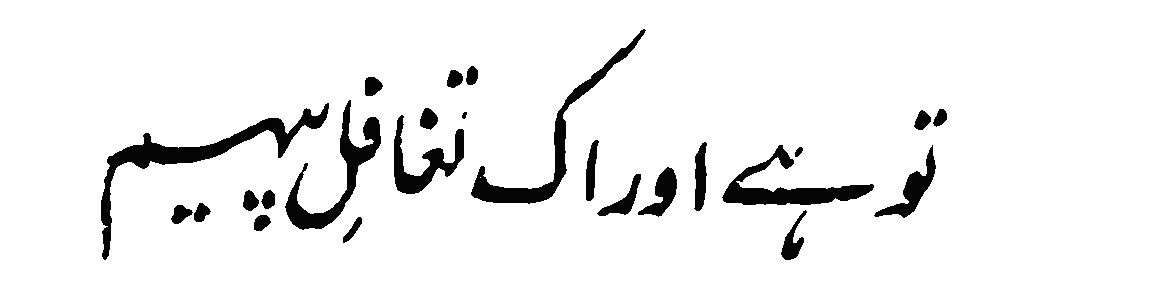 تو ہے اور اک تغافلِ پیہم